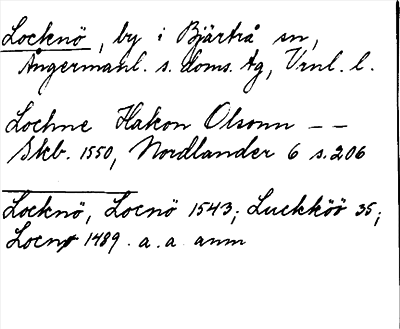 Locknö, by i Bjärtrå sn,
Ångermanl. s. doms. tg, Vrnl. l.
Lochne Hakon Olsonn – –
Skb. 1550, Nordlander 6 s. 206
Locknö, Locnö 1543; Luckköö 35;
Locnø 1489. a. a. anm